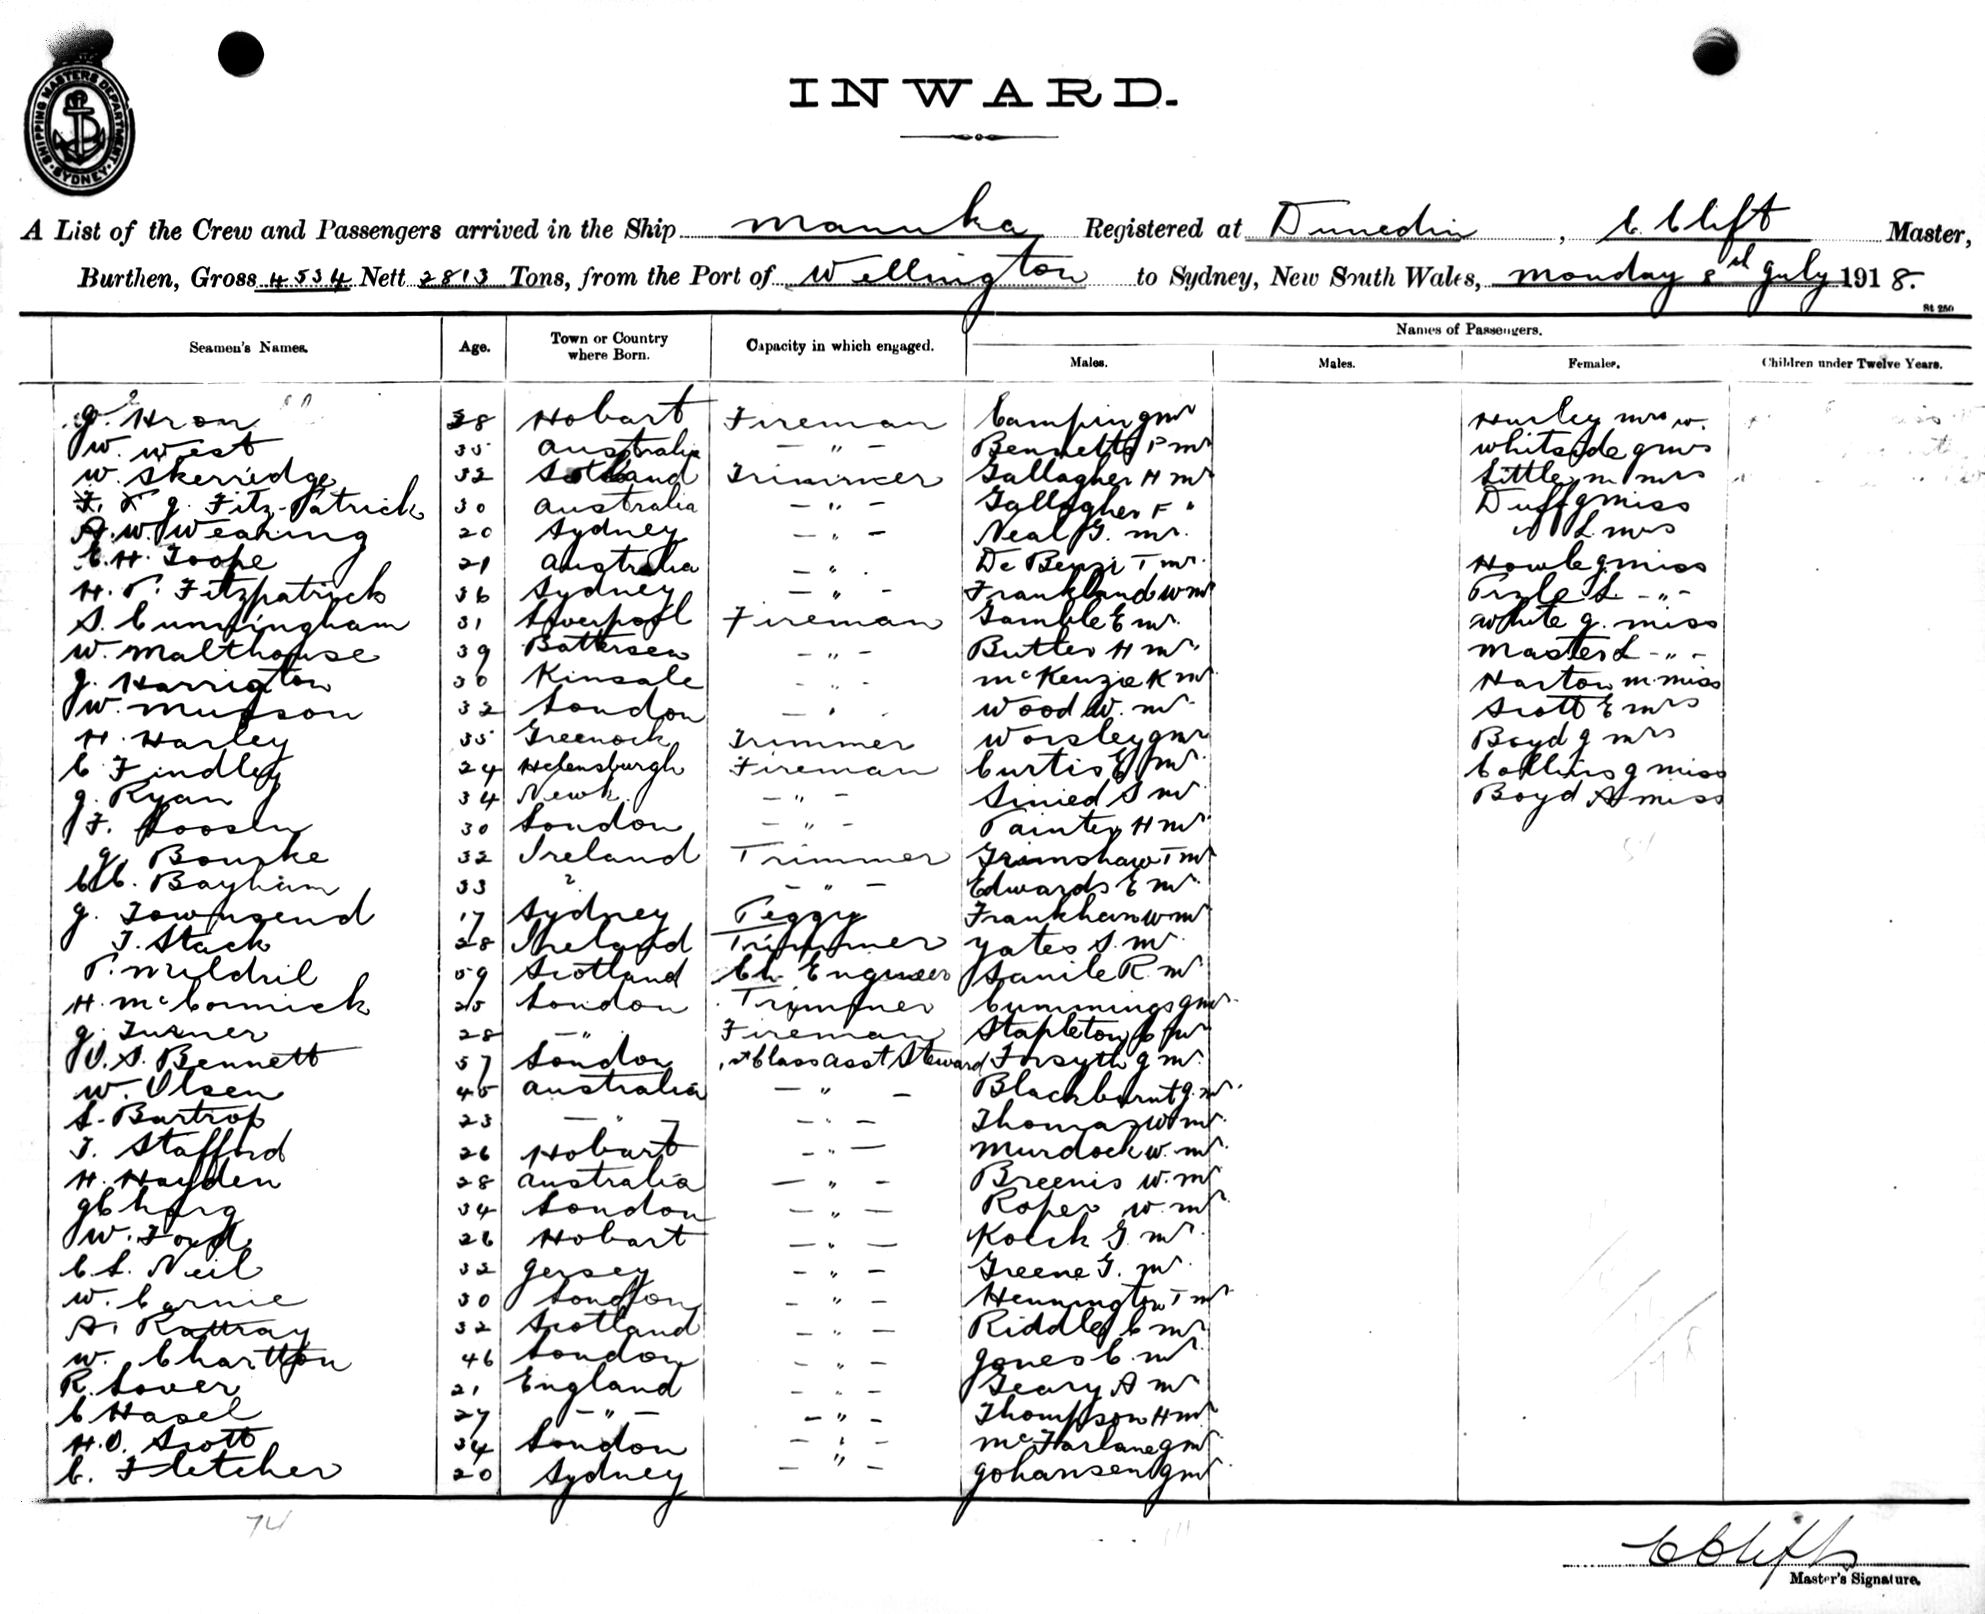 SHIPPING MASTERS DEPARTMENT SYDNEY
INWARD.
A List of the Crew and Passengers arrived in the Ship Manuka Registered at Dunedin, C. Clift Master,
Burthen, Gross 4534 Nett 2813 Tons, from the Port of Wellington to Sydney, New South Wales, Monday 8th July 1918.
St 250
Seamen's Names. Age. Town or Country where Born. Capacity in which engaged. Names of Passengers.
Males. Males. Females. Children under Twelve Years.
J. Hron 28 Hobart Fireman Camping Mr Hurley Mrs W.
W. West 35 Australia — " — Bennetts P Mr Whitside G Mrs
W. Skerridge 32 Scotland Trimmer Gallagher H Mr Little M Mrs
F. P J. Fitz-Patrick 30 Australia — " — Gallagher F " Duff G Miss
A. W. Wearing 20 Sydney — " — Neal G. Mr. L Mrs
C. H. Toope 21 Australia — " . De Benzi T Mr. Howle J Miss
H. P. Fitzpatrick 36 Sydney — " — Frankland W Mr L. — " —
S. Cunningham 31 Liverpool Fireman Gamble E Mr. White G. Miss
W. Malthouse 39 Battersea — " — Butler H Mr. Masters L — " —
J. Harrigton 30 Kinsale — " — McKenzie K Mr Harton M. Miss
W. Mudson 32 London — " . Wood W. Mr. Scott E Mrs
H. Harley 35 Greenock Trimmer Worsley G Mr Boyd J Mrs
C. Findley 24 Helensburgh Fireman Curtis E Mr. Collins J Miss
J. Ryan 34 Newk. — " — Sinied S Mr. Boyd A Miss
F. Loosly 30 London — " — Painter H Mr
J. Bourke 32 Ireland Trimmer Grimshaw T Mr
C. Bayham 33 " — " — Edwards E Mr.
J. Townsend 17 Sydney Peggy W Mr
T. Stack 28 Ireland Trimmer Yates S. Mr.
P. Muldril 59 Scotland Ch. Engineer R. Mr
H. McCormick 25 London Trimmer Cummings G Mr.
J. Turner 28 — " . Fireman Stapleton C Mr
V. S. Bennett 57 London 1st Class Asst Steward Forsyth J Mr.
W. Olsen 45 Australia — " — Blackburn J. Mr.
S. Bartrop 23 — " — — " — Thomas W Mr.
T. Stafford 26 Hobart — " — Murdock W. Mr.
H. Hayden 28 Australia — " — Breenis W. Mr
34 London — " — Roper W. Mr
W. Ford 26 Hobart — " — Kolck G. Mr.
C S. Neil 32 Jersey — " — Greene G. Mr.
W. Carnie 30 London — " — Hennington T Mr
A. Rattray 32 Scotland — " — Riddle C Mr
W. Chartton 46 London — " — Jones C. Mr.
R. Lover 21 England — " — Geary A Mr
C Hasel 27 — " — — " — Thompson H Mr
H. O. Scott 34 London — " — McFarlane J Mr
C. Fletcher 20 Sydney — " — Johansen J Mr
74
C Clift
Master's Signature.